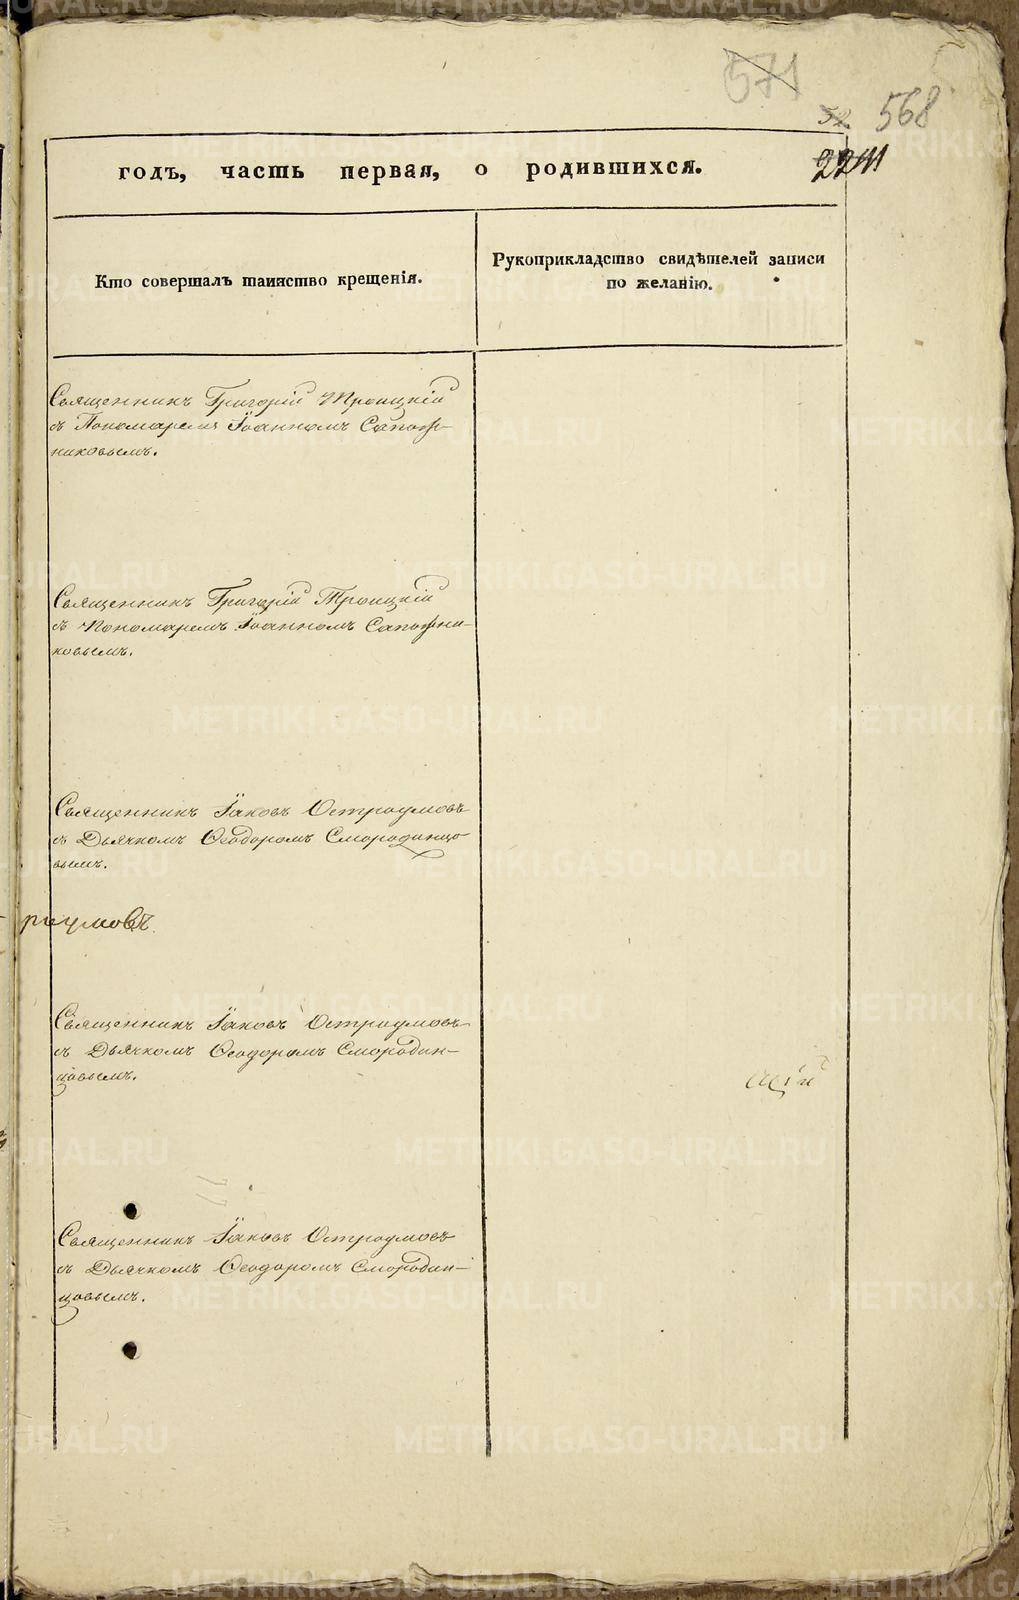 571
52 568
годъ, часть первая, о родившихся.
Кто совершалъ таинство крещенія.
Рукоприкладство свидѣтелей записи
по желанію.
Священникъ Григорій Троицкій
съ Пономаремъ Іоанномъ Сапож-
никовымъ.
Священникъ Григорій Троицкій
съ Пономаремъ Іоанномъ Сапожни-
ковымъ.
Священникъ Іаковъ Остроумовъ
съ Дьячкомъ Ѳеодоромъ Смородинцо-
вымъ.
роумовъ.
Священникъ Іаковъ Остроумовъ
съ Дьячкомъ Ѳеодоромъ Смородин-
цовымъ.
Священникъ Іаковъ Остроумовъ
съ Дьячкомъ Ѳеодоромъ Смородин-
цовымъ.
METRIKI.GASO-URAL.RU